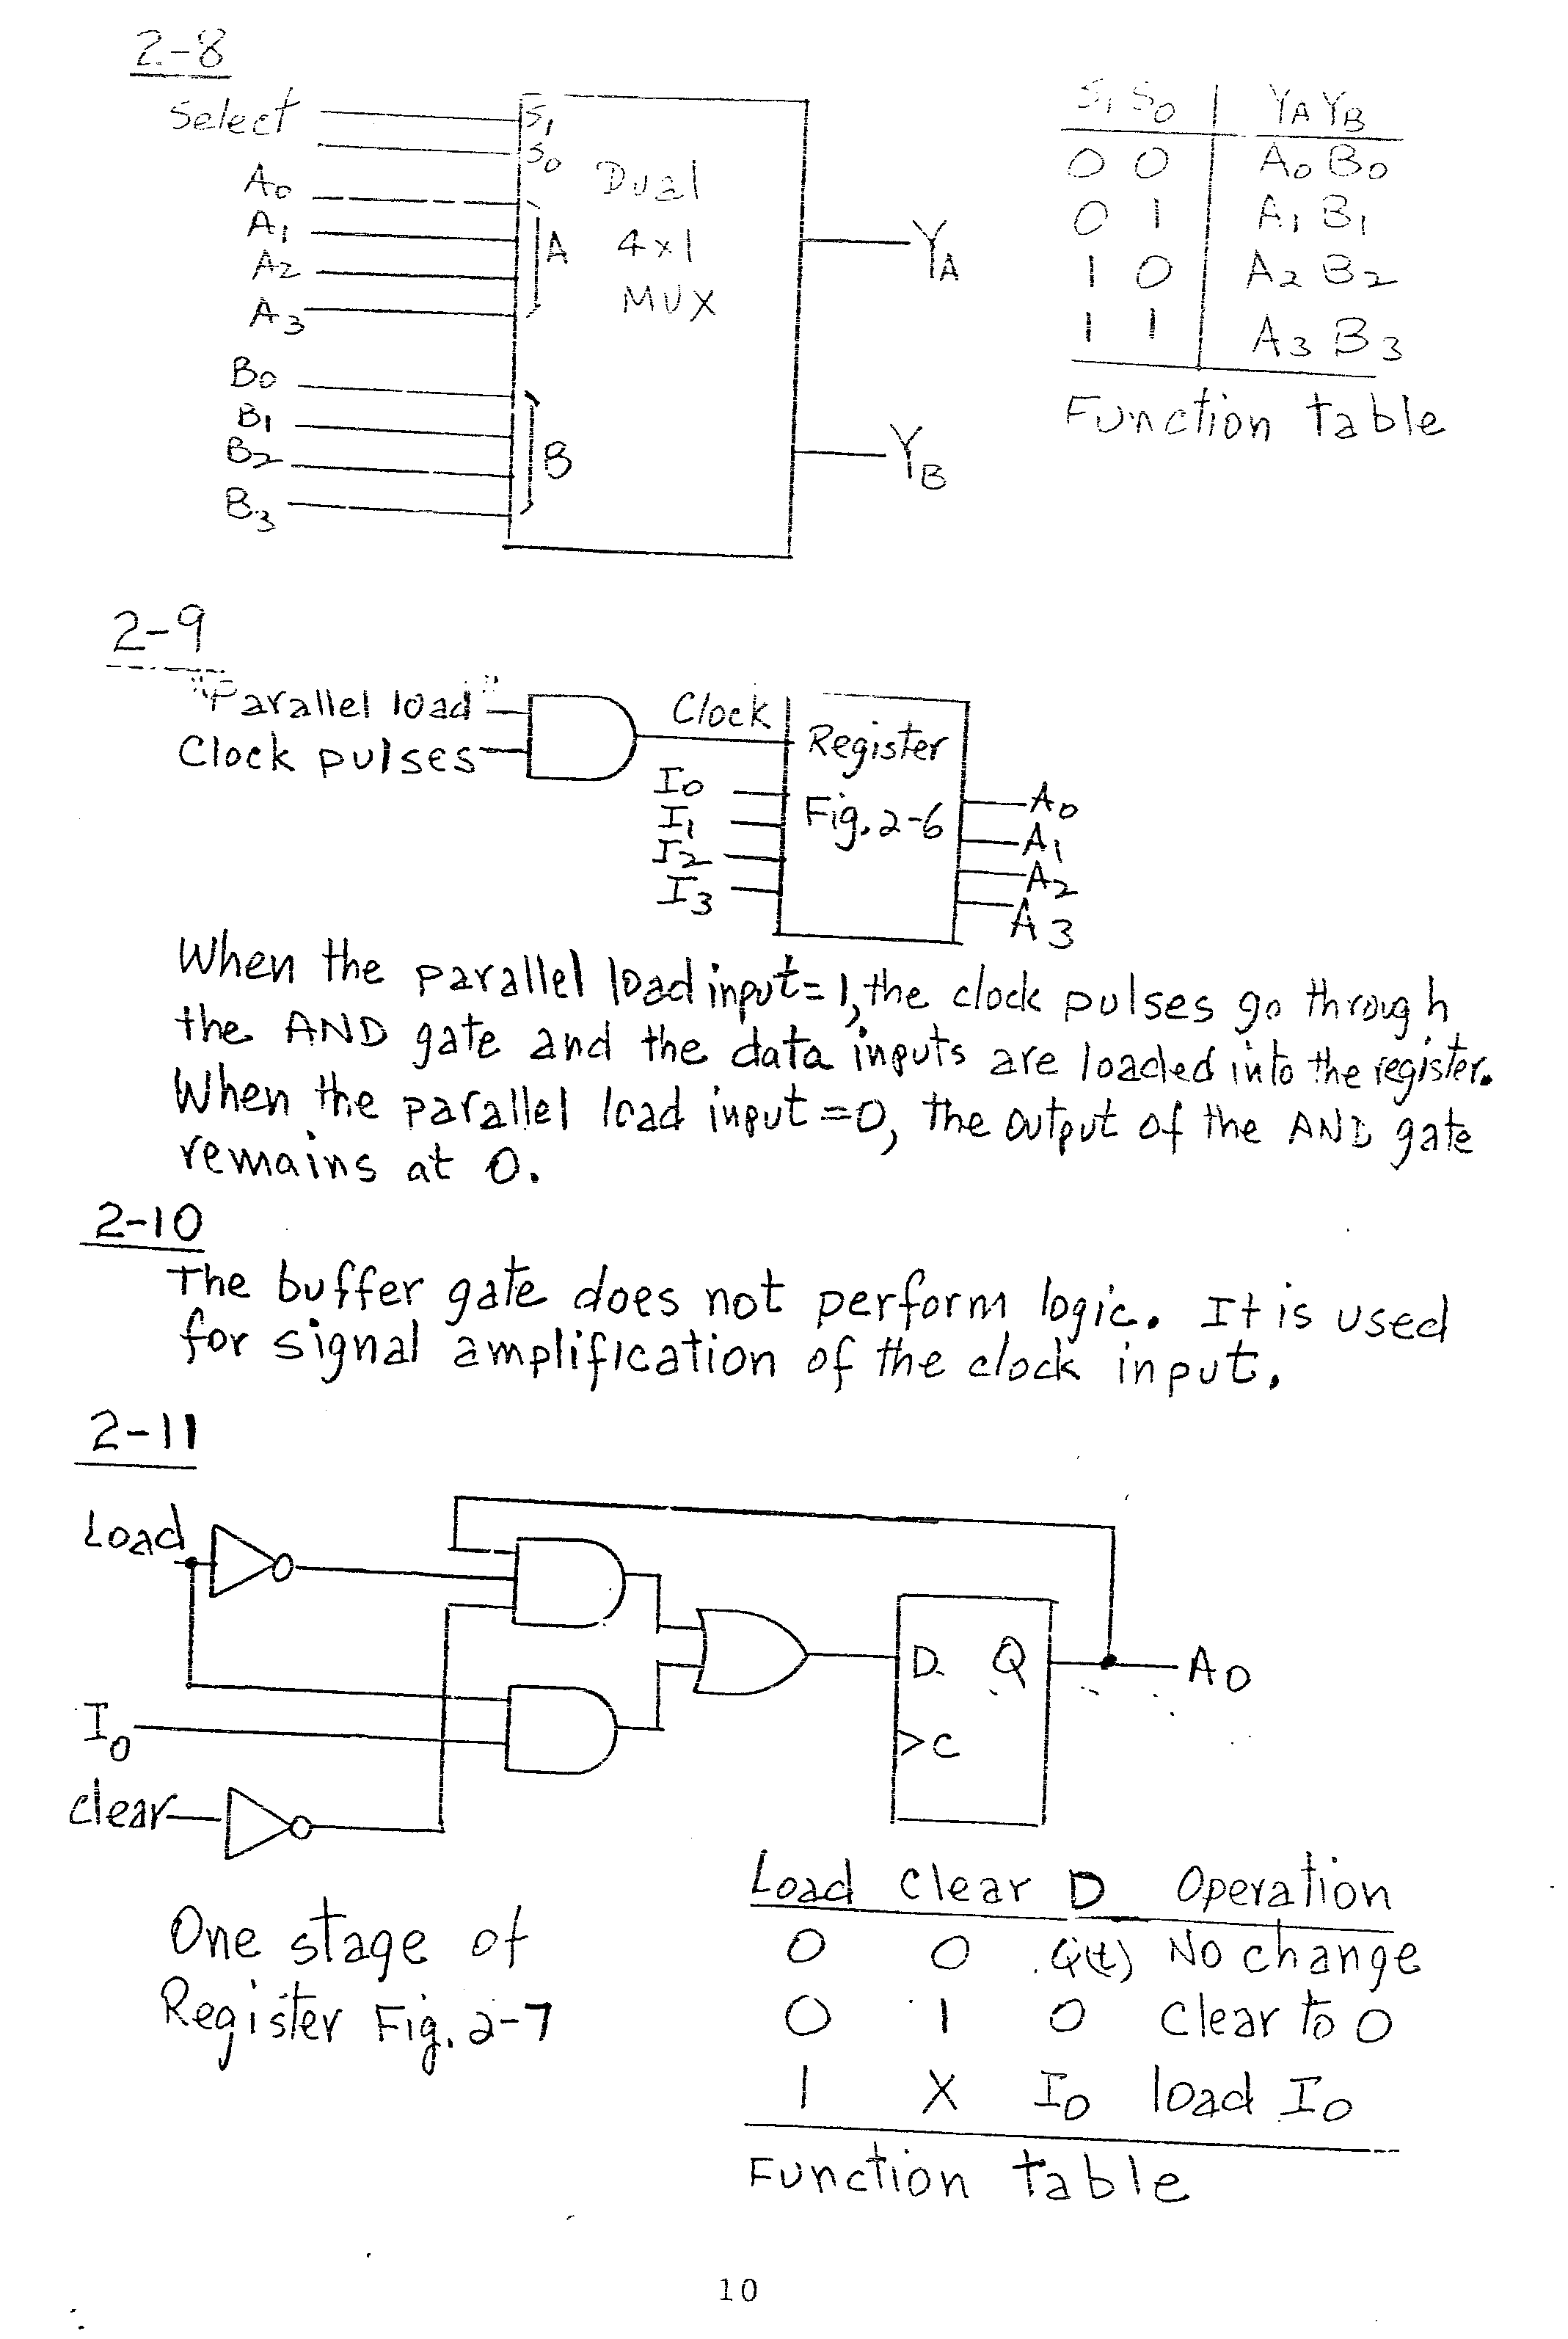 2-8
Select
S1
S0
A0
A1
A2
A3
A
B0
B1
B2
B3
B
Dual
4x1
MUX
YA
YB
S1 S0 YA YB
0 0 A0 B0
0 1 A1 B1
1 0 A2 B2
1 1 A3 B3
Function table
2-9
"Parallel load"
Clock pulses
Clock
I0
I1
I2
I3
Register
Fig. 2-6
A0
A1
A2
A3
When the parallel load input=1, the clock pulses go through
the AND gate and the data inputs are loaded into the register.
When the parallel load input =0, the output of the AND gate
remains at 0.
2-10
The buffer gate does not perform logic. It is used
for signal amplification of the clock input.
2-11
Load
I0
clear
D Q
C
A0
One stage of
Register Fig. 2-7
Load Clear D Operation
0 0 Q(t) No change
0 1 0 Clear to 0
1 X I0 load I0
Function table
10